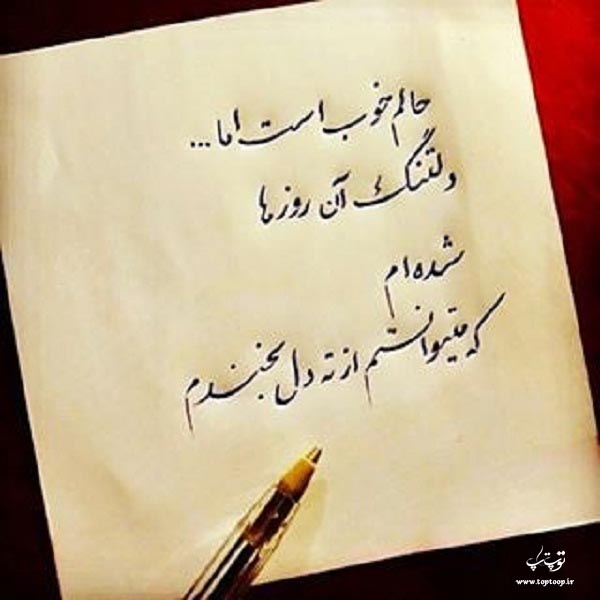 حالم خوب است اما...
دلتنگ آن روزها
شده ام
که میتوانستم از ته دل بخندم
توپ تاپ
www.toptoop.ir